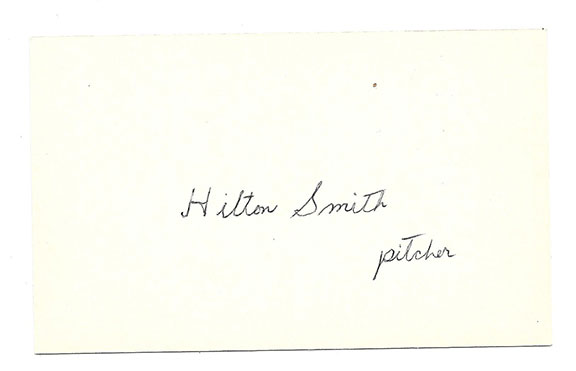 Hilton Smith
pitcher